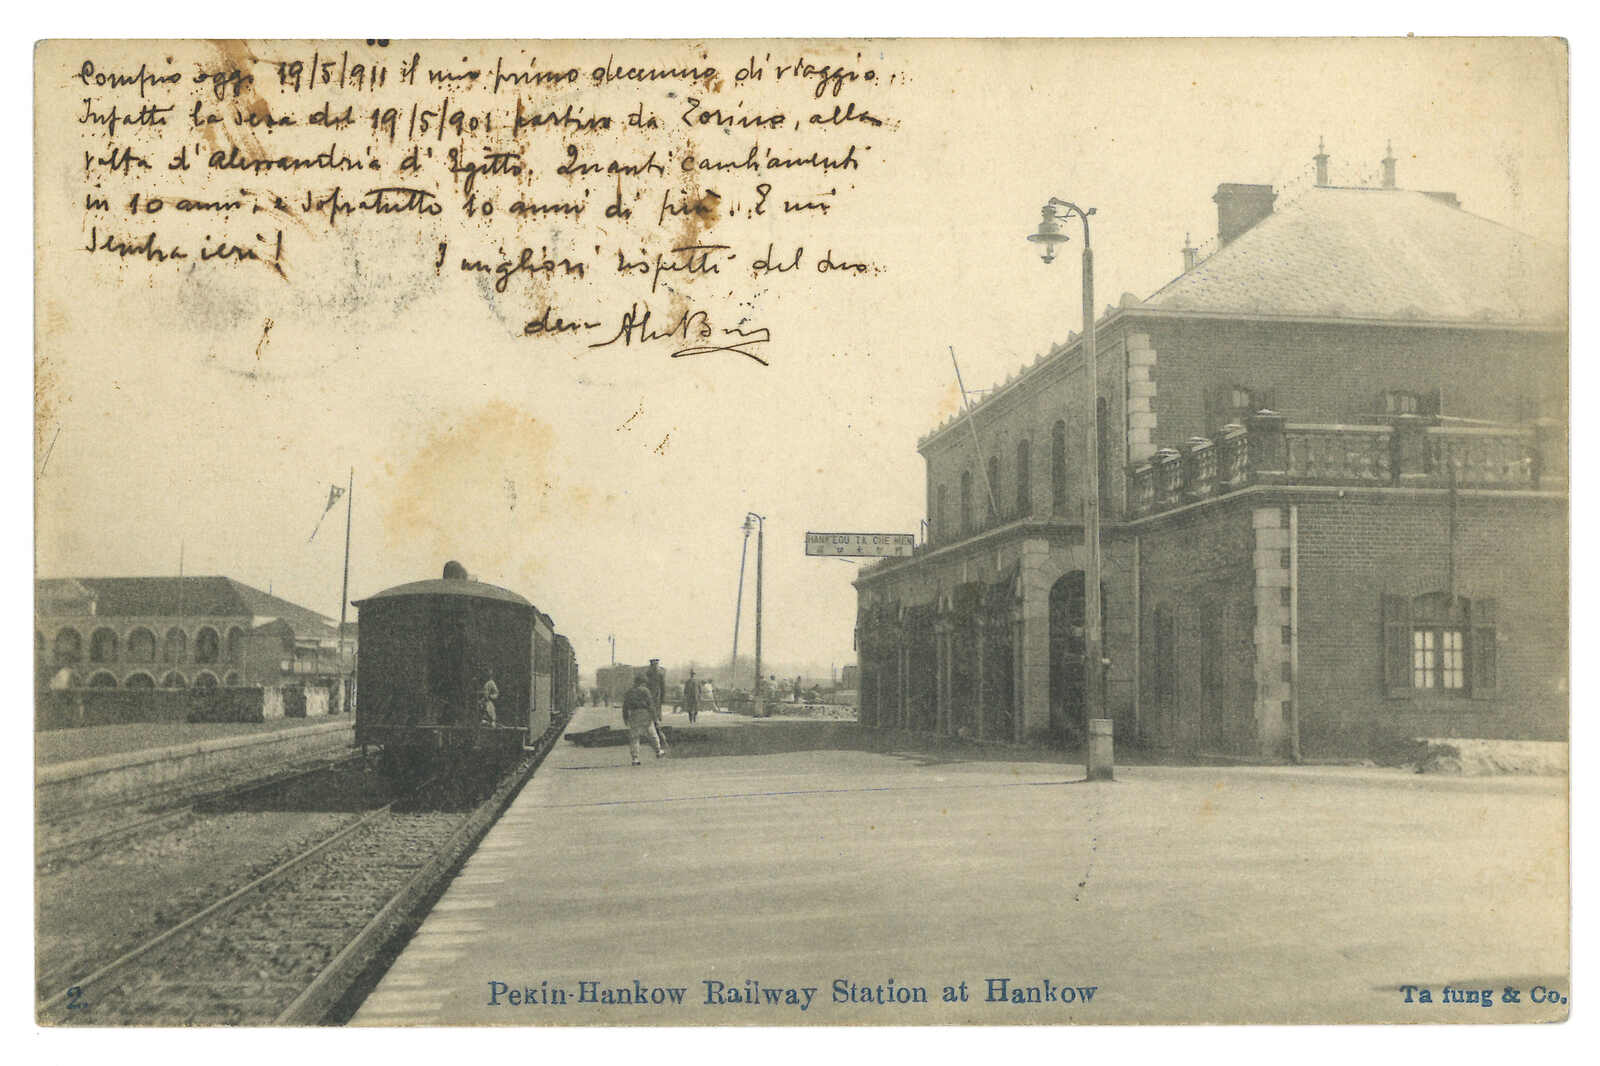 Compio oggi 19/5/911 il mio primo decennio di viaggio.
Infatti la sera del 19/5/901 partivo da Torino, alla
volta d'Alessandria d'Egitto. Quanti cambiamenti
in 10 anni, e sopratutto 10 anni di più. E mi
sembra ieri!
I migliori rispetti del suo
HANKEOU TA CHE MEN
Pekin-Hankow Railway Station at Hankow
2.
Ta fung & Co.